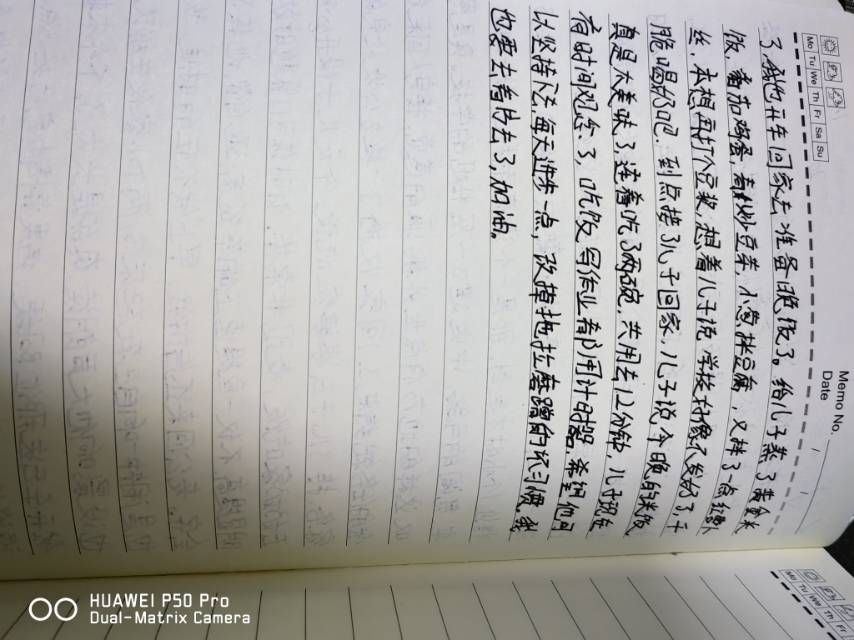 Memo No.
Date / /
Mo Tu We Th Fr Sa Su
了,我也开车回家去准备晚饭了。给儿子蒸了黄金米
饭,番茄鸡蛋,青椒炒豆干,小葱拌豆腐,又拌了一点红萝卜
丝,本想再打个豆浆,想着儿子说学校好像不发奶了,干
脆喝奶吧.到点接了儿子回家,儿子说今晚的米饭
真是太美味了,连着吃了两碗,共用去12分钟,儿子现在
有时间观念了,吃饭写作业都用计时器,希望他可
以坚持下去,每天进步一点,改掉拖拉磨蹭的坏习惯,我
也要去看书去了,加油。
Mo Tu We Th Fr
HUAWEI P50 Pro
Dual-Matrix Camera